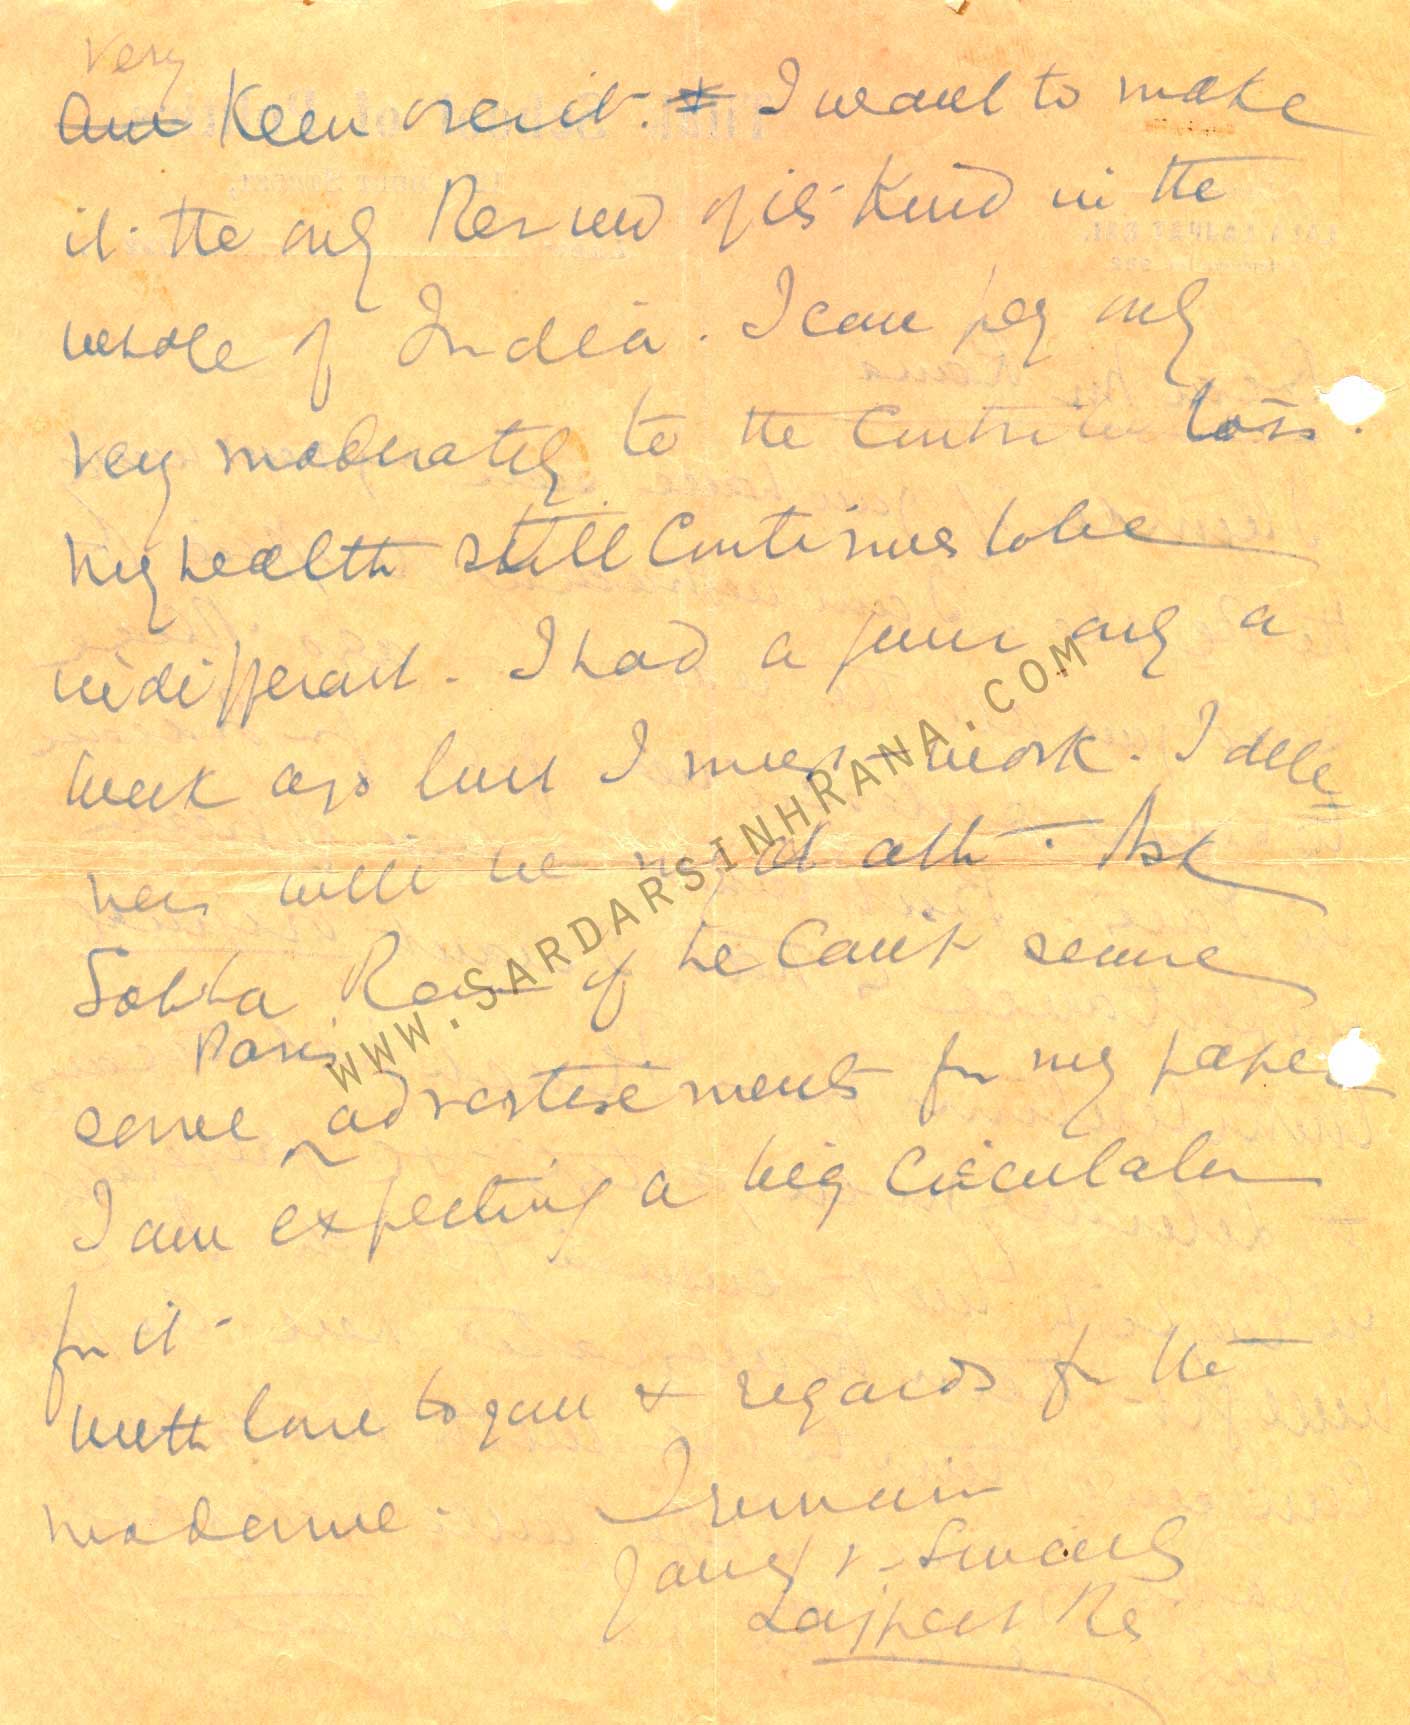 very
am Keen over it. I want to make
it the only Review of its kind in the
whole of India. I can pay only
very moderately to the Contributors.
My health still Continues to be
indifferent. I had a only a
week ago but I must work. I
will be my death. Ask
Sobha Ram if he can't secure
Paris
some advertisements for my paper
I am expecting a big Circulation
for it.
With love to you & regards for the
madame.
I remain
Yours v. Sincerely
Lajpat Rai
WWW.SARDARSINHRANA.COM